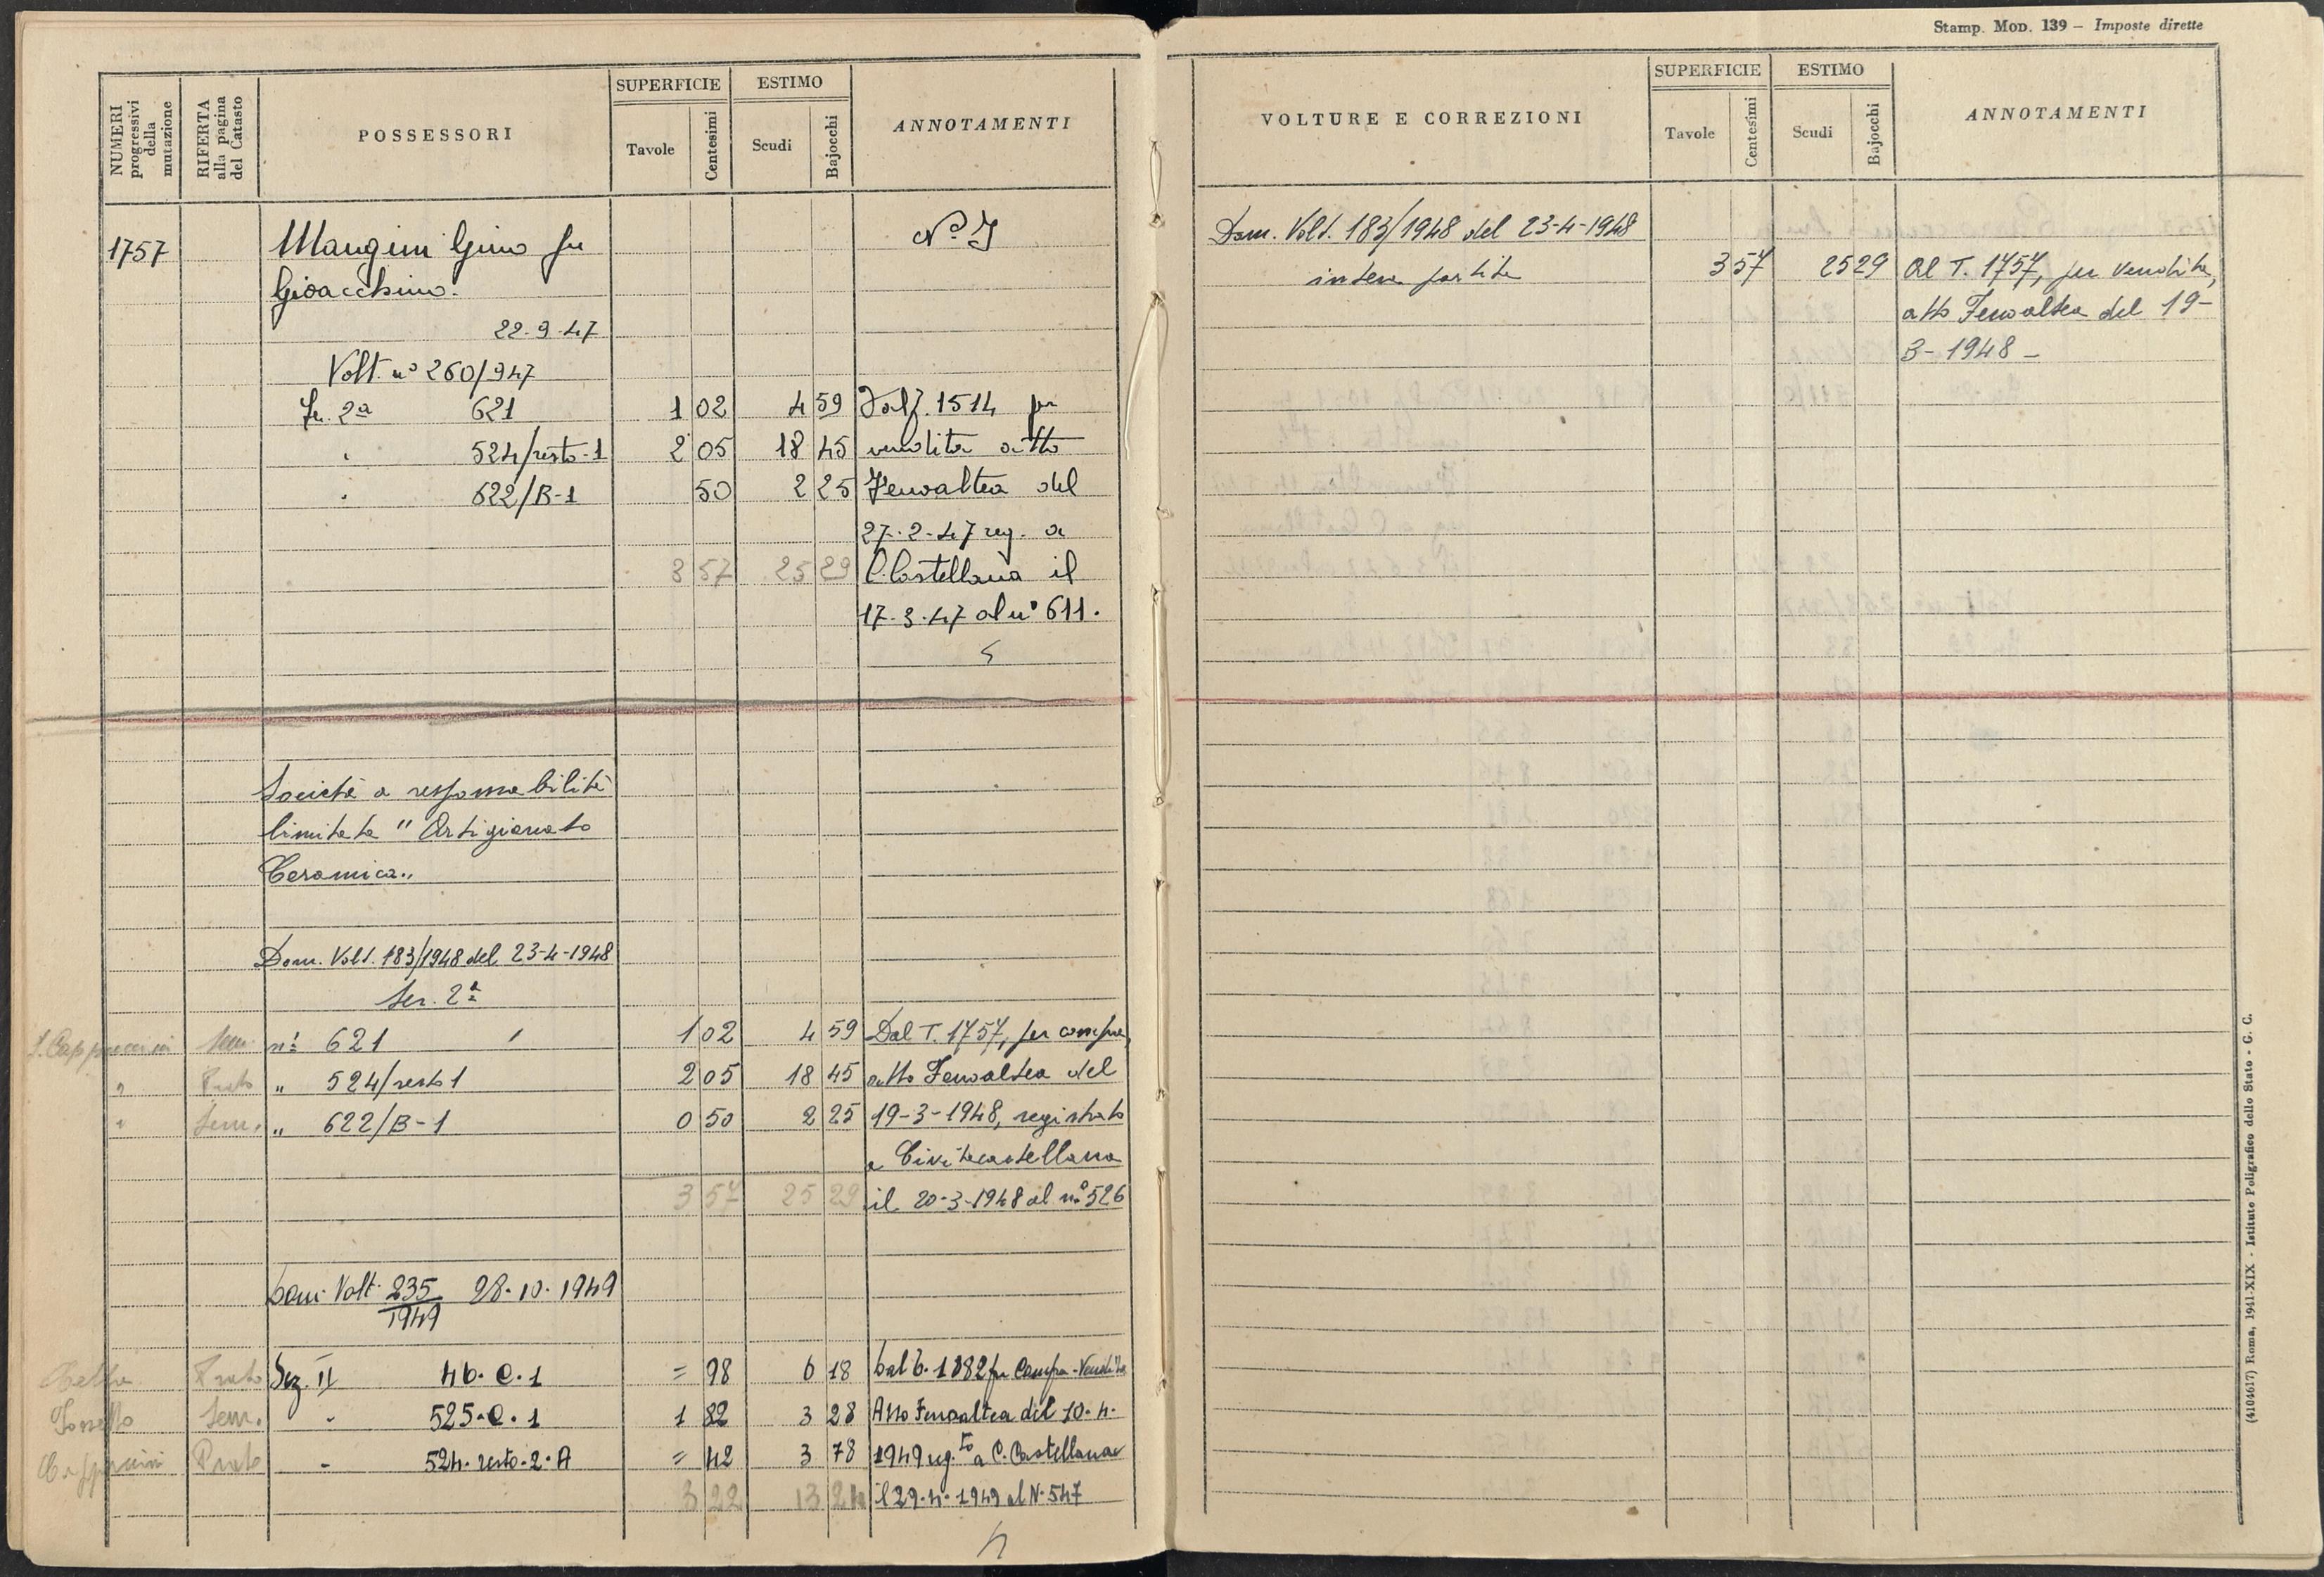 Stamp. Mod. 139 — Imposte dirette
NUMERI progressivi della mutazione
RIFERTA alla pagina del Catasto
POSSESSORI
SUPERFICIE
Tavole
Centesimi
ESTIMO
Scudi
Bajocchi
ANNOTAMENTI
1757
Mangini Gino fu
Gioacchino.
22-9-47
Volt. n° 260/947
Se. 2a 621 1 02 4 59
" 524/resto-1 2 05 18 45
" 622/B-1 50 2 25
3 57 25 29
N° I
Dal f. 1514 per
vendita atto
Fenoaltea del
27-2-47 reg. a
C. Castellana il
17-3-47 al n° 611.
Società a responsabilità
limitata " Artigianato
Ceramica„
Dom. Volt. 183/1948 del 23-4-1948
Ser. 2a
Cappuccini Sem. n° 621 1 02 4 59 Dal T. 1757, per compra,
" Prato „ 524/resto 1 2 05 18 45 atto Fenoaltea del
" Sem. „ 622/B-1 0 50 2 25 19-3-1948, registrato
a Civitacastellana
3 57 25 29 il 20-3-1948 al n° 526
Dom. Volt. 235/1949 28.10.1949
Prato Sez. II 46.C.1 = 98 6 18 Dal T. 1882 per Compra-Vendita
Sem. " 525.C.1 1 82 3 28 Atto Fenoaltea del 10.4.
Cappuccini Prato " 524.resto.2.A = 42 3 78 1949 reg.to a C. Castellana
3 22 13 24 il 29.4.1949 al N. 547
VOLTURE E CORREZIONI
SUPERFICIE
Tavole
Centesimi
ESTIMO
Scudi
Bajocchi
ANNOTAMENTI
Dom. Volt. 183/1948 del 23-4-1948
intera partita 3 57 25 29 Al T. 1757, per vendita,
atto Fenoaltea del 19-
3-1948 —
(4104617) Roma, 1941-XIX - Istituto Poligrafico dello Stato - G. C.